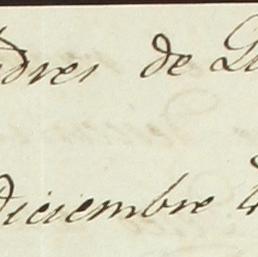 dres de
Diciembre